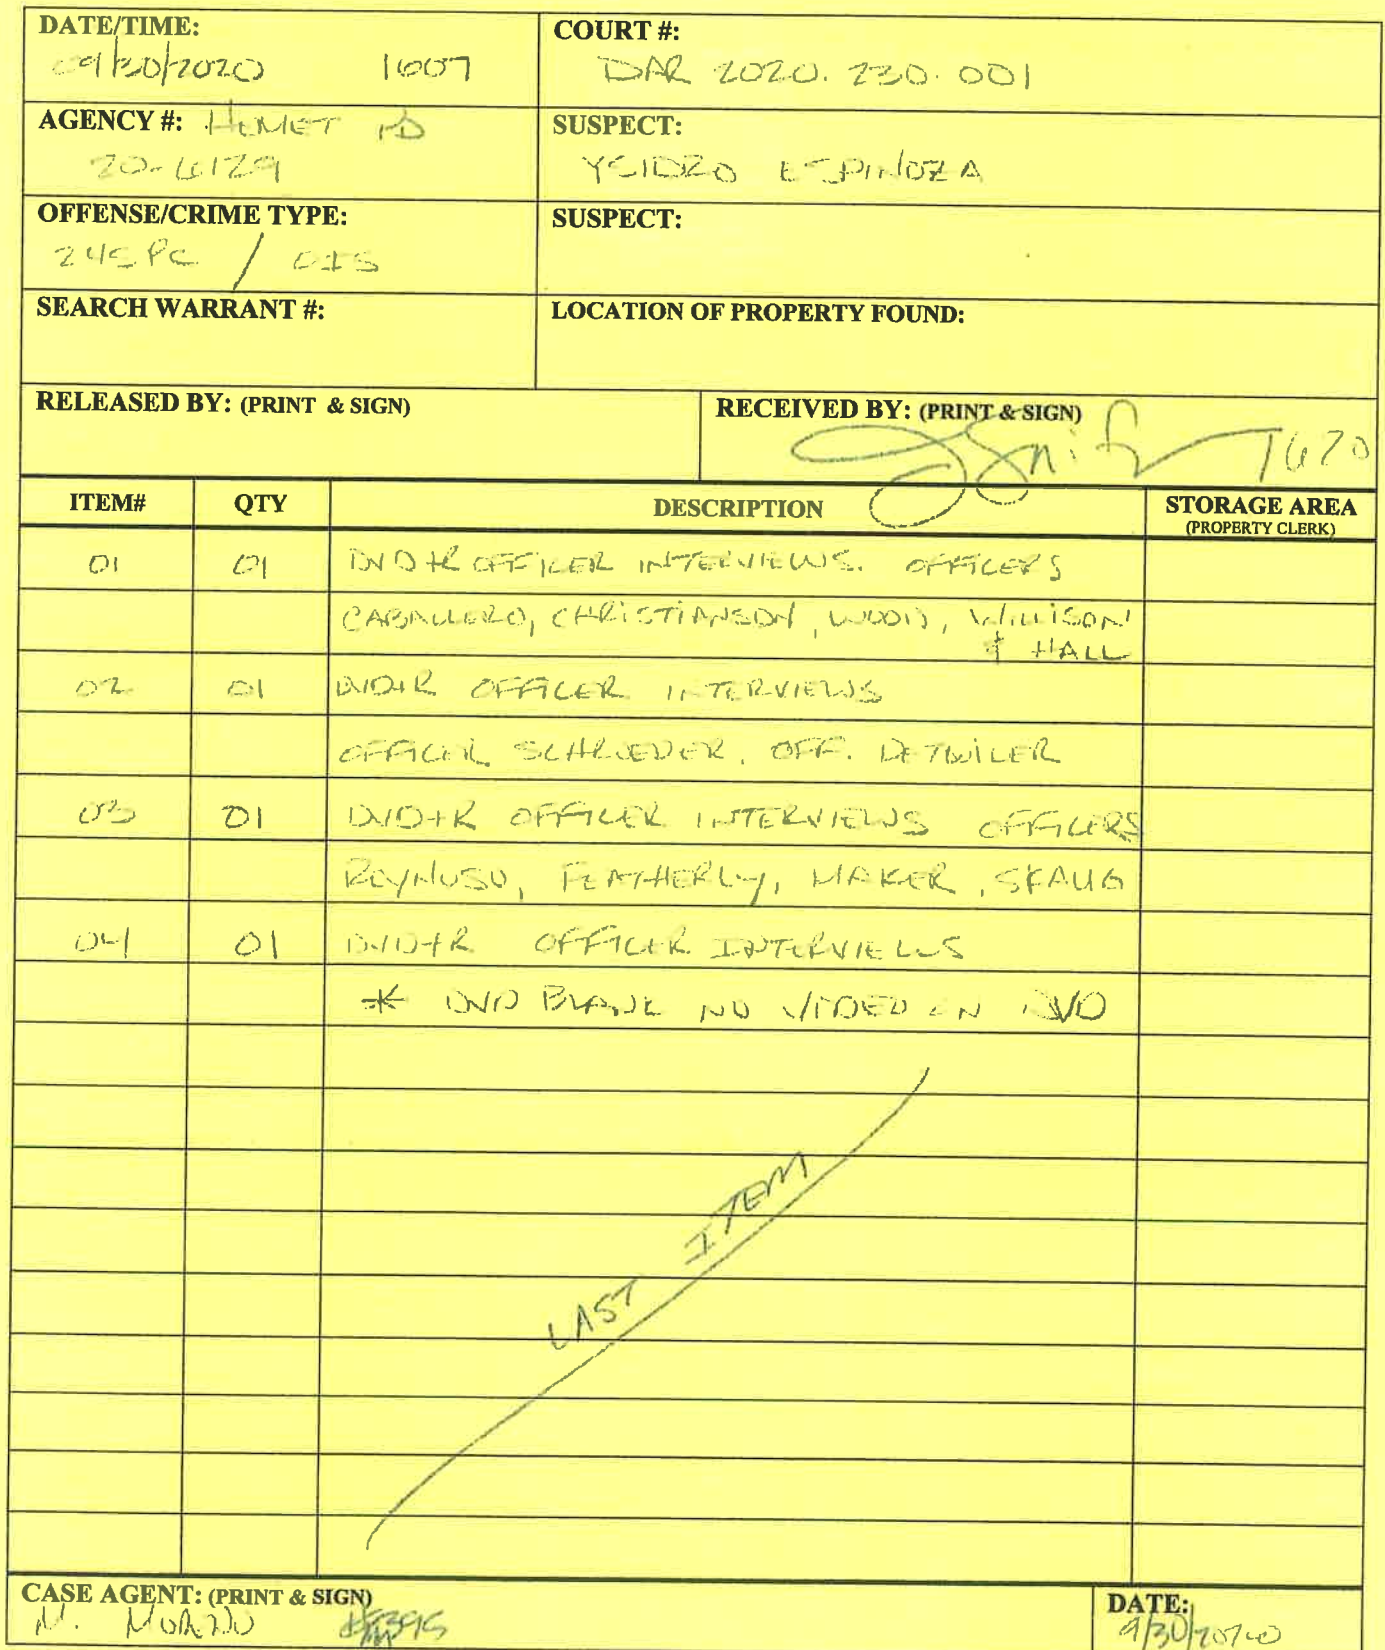 DATE/TIME:
09/30/2020 1607
COURT #:
DAR 2020. 230. 001
AGENCY #: HEMET PD
20-6129
SUSPECT:
YSIDRO ESPINOZA
OFFENSE/CRIME TYPE:
245 PC / OIS
SUSPECT:
SEARCH WARRANT #:
LOCATION OF PROPERTY FOUND:
RELEASED BY: (PRINT & SIGN)
RECEIVED BY: (PRINT & SIGN)
1670
ITEM# QTY DESCRIPTION STORAGE AREA
(PROPERTY CLERK)
01 01 DVD+R OFFICER INTERVIEWS. OFFICERS
CABALLERO, CHRISTIANSON, WOOD, WILLISON
& HALL
02 01 DVD+R OFFICER INTERVIEWS
OFFICER SCHROEDER, OFF. DETWILER
03 01 DVD+R OFFICER INTERVIEWS OFFICERS
REYNOSO, FEATHERLY, MAKER, SKAUG
04 01 DVD+R OFFICER INTERVIEWS
* DVD BLANK NO VIDEO ON DVD
LAST ITEM
CASE AGENT: (PRINT & SIGN)
DATE:
9/30/2020